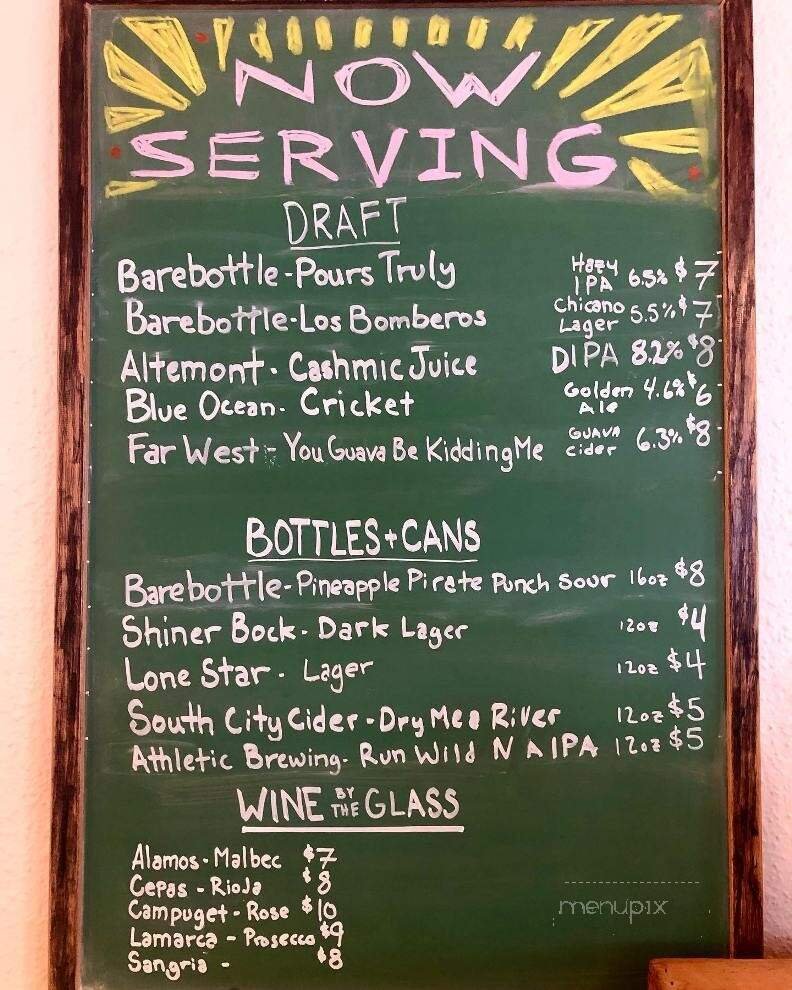 NOW
SERVING
DRAFT
Barebottle-Pours Truly Hazy IPA 6.5% $7
Barebottle-Los Bomberos Chicano Lager 5.5% $7
Altemont - Cashmic Juice DIPA 8.2% $8
Blue Ocean - Cricket Golden Ale 4.6% $6
Far West - You Guava Be Kidding Me GUAVA cider 6.3% $8
BOTTLES + CANS
Barebottle-Pineapple Pirate Punch Sour 16oz $8
Shiner Bock - Dark Lager 12oz $4
Lone Star - Lager 12oz $4
South City Cider - Dry Mea River 12oz $5
Athletic Brewing - Run Wild N A IPA 12oz $5
WINE BY THE GLASS
Alamos - Malbec $7
Cepas - Rioja $8
Campuget - Rose $10
Lamarca - Prosecco $9
Sangria - $8
menupix